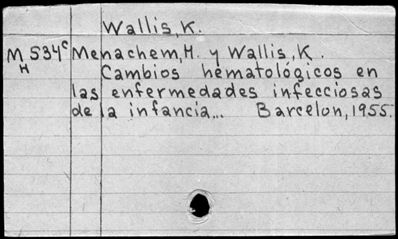 Wallis, K.
M534c Menachem, H. y Wallis, K.
H Cambios hematológicos en
las enfermedades infecciosas
de la infancia... Barcelon, 1955.